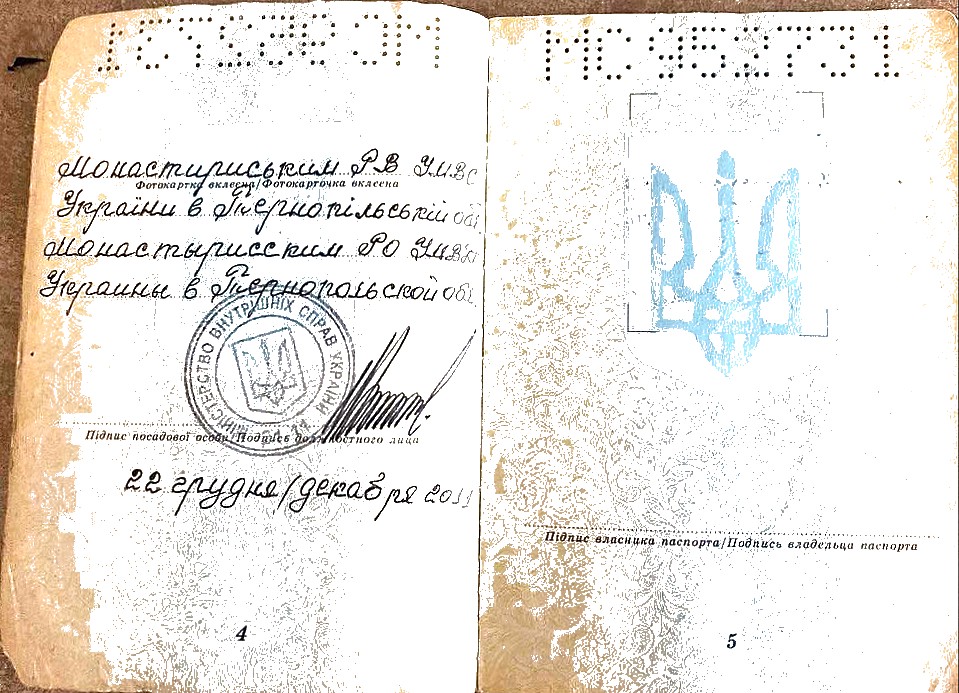 МС 952731
Монастириським РВ УМВС
Фотокартка вклеєна/Фотокарточка вклеена
України в Тернопільській обл
Монастырисским РО УМВД
Украины в Тернопольской обл
МІНІСТЕРСТВО ВНУТРІШНІХ СПРАВ УКРАЇНИ
Підпис посадової особи/Подпись должностного лица
22 грудня/декабря 2011
4
МС 952731
Підпис власника паспорта/Подпись владельца паспорта
5